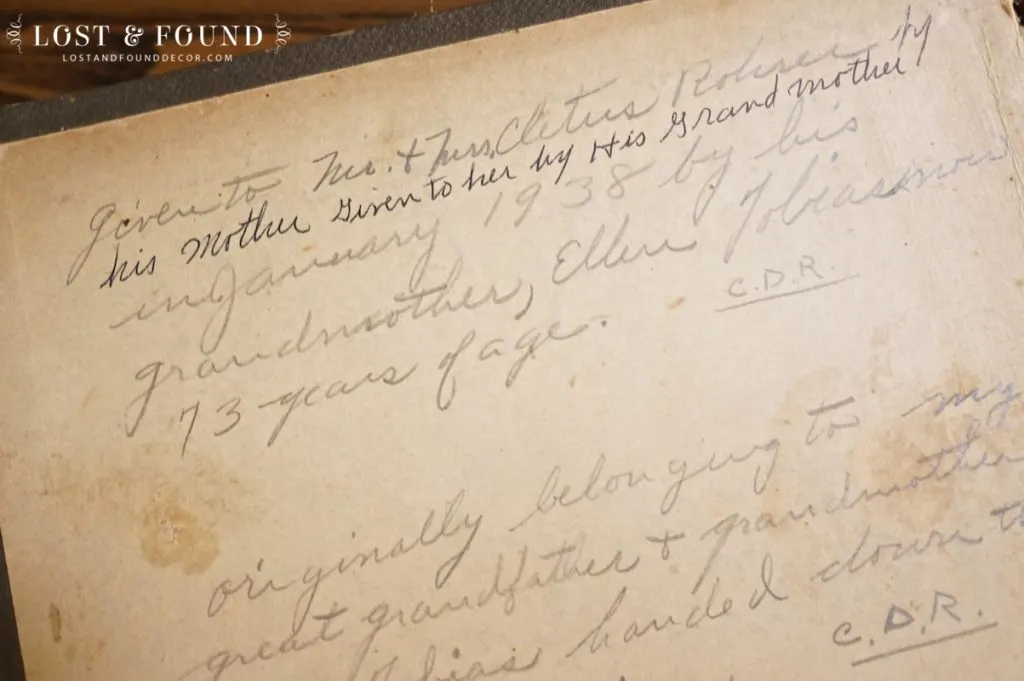 LOST & FOUND
LOSTANDFOUNDDECOR.COM
Given to Mr. & Mrs. Cletus Rohrer by
his Mother Given to her by His Grand mother
in January 1938 by his
grandmother, Ellen Tobias now
73 years of age.
C.D.R.
originally belonging to my
great grandfather & grandmother
Tobias handed down
C.D.R.